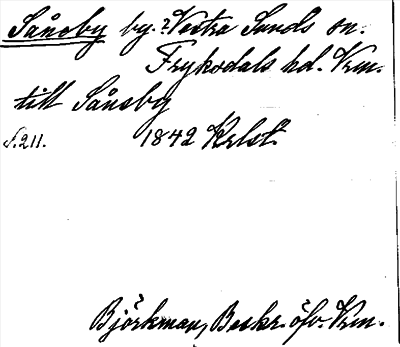 Sånsby by. ? Vestra Sunds sn.
Frykdals hd. Vrm.
till Sånsby
s. 211. 1842 Krlst.
Björkman, Beskr. öfv. Vrm.